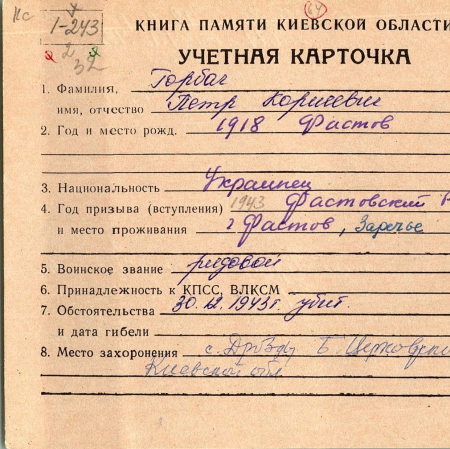 Кс
64
1-243
2
32
КНИГА ПАМЯТИ КИЕВСКОЙ ОБЛАСТИ
УЧЕТНАЯ КАРТОЧКА
1. Фамилия, Горбач
имя, отчество Петр Корнеевич
2. Год и место рожд. 1918 Фастов
3. Национальность Украинец
4. Год призыва (вступления) 1943 Фастовский Р
и место проживания г Фастов, Заречье
5. Воинское звание рядовой
6. Принадлежность к КПСС, ВЛКСМ
7. Обстоятельства 30.12.1943г. убит.
и дата гибели
8. Место захоронения с. Дрозды Б. Церковский
Киевской обл